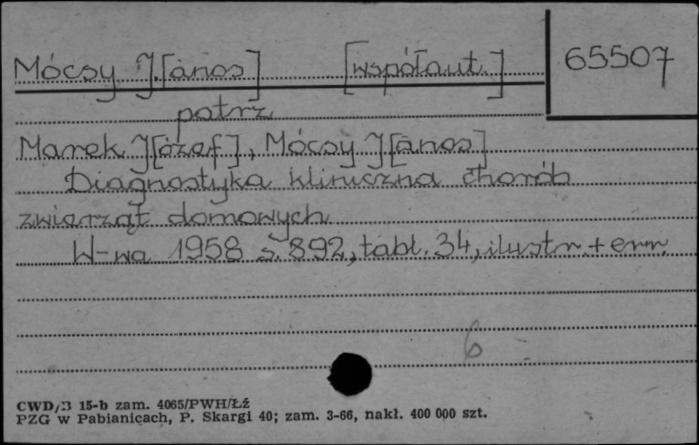 Mócsy J.[ános] [współaut.] 65507
patrz
Marek J[ózef], Mócsy J[ános]
Diagnostyka kliniczna chorób
zwierząt domowych
W-wa 1958 s. 892, tabl. 34, ilustr. + err.
6
CWD/3 15-b zam. 4065/PWH/Łż
PZG w Pabianicach, P. Skargi 40; zam. 3-66, nakł. 400 000 szt.